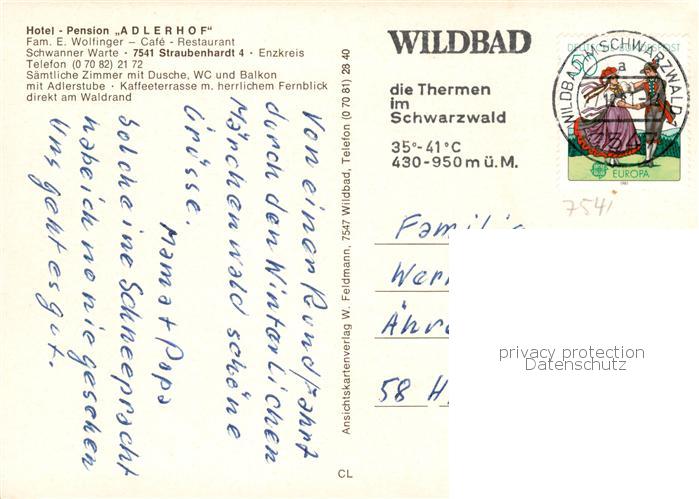 Hotel - Pension „ADLERHOF"
Fam. E. Wolfinger – Café - Restaurant
Schwanner Warte · 7541 Straubenhardt 4 · Enzkreis
Telefon (0 70 82) 21 72
Sämtliche Zimmer mit Dusche, WC und Balkon
mit Adlerstube · Kaffeeterrasse m. herrlichem Fernblick
direkt am Waldrand
Von einer Rundfahrt
durch den Winterlichen
Märchenwald schöne
Grüsse.
Mama + Papa
Solche eine Schneepracht
habe ich no nie gesehen
Uns geht es gut.
Ansichtskartenverlag W. Feldmann, 7547 Wildbad, Telefon (0 70 81) 28 40
CL
WILDBAD
die Thermen
im
Schwarzwald
35°-41°C
430-950 m ü. M.
DEUTSCHE BUNDESPOST
WILDBAD IM SCHWARZWALD 1
a
EUROPA
1981
7541
Familie
Wer
Ähr
58 H
privacy protection
Datenschutz